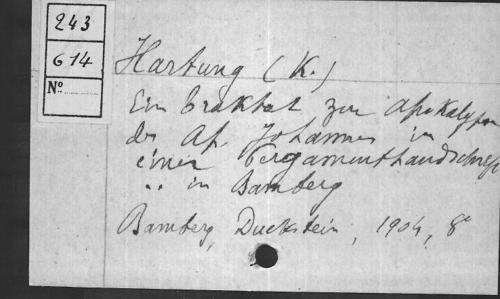 243
G 14
N°
Hartung (K.)
Ein Traktat zur Apokalypse
des Ap. Johannes in
einer Pergamenthandschrift
.. in Bamberg
Bamberg, Duckstein, 1904, 8°